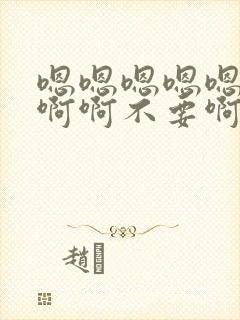 嗯嗯嗯嗯嗯
啊啊不要啊
趙